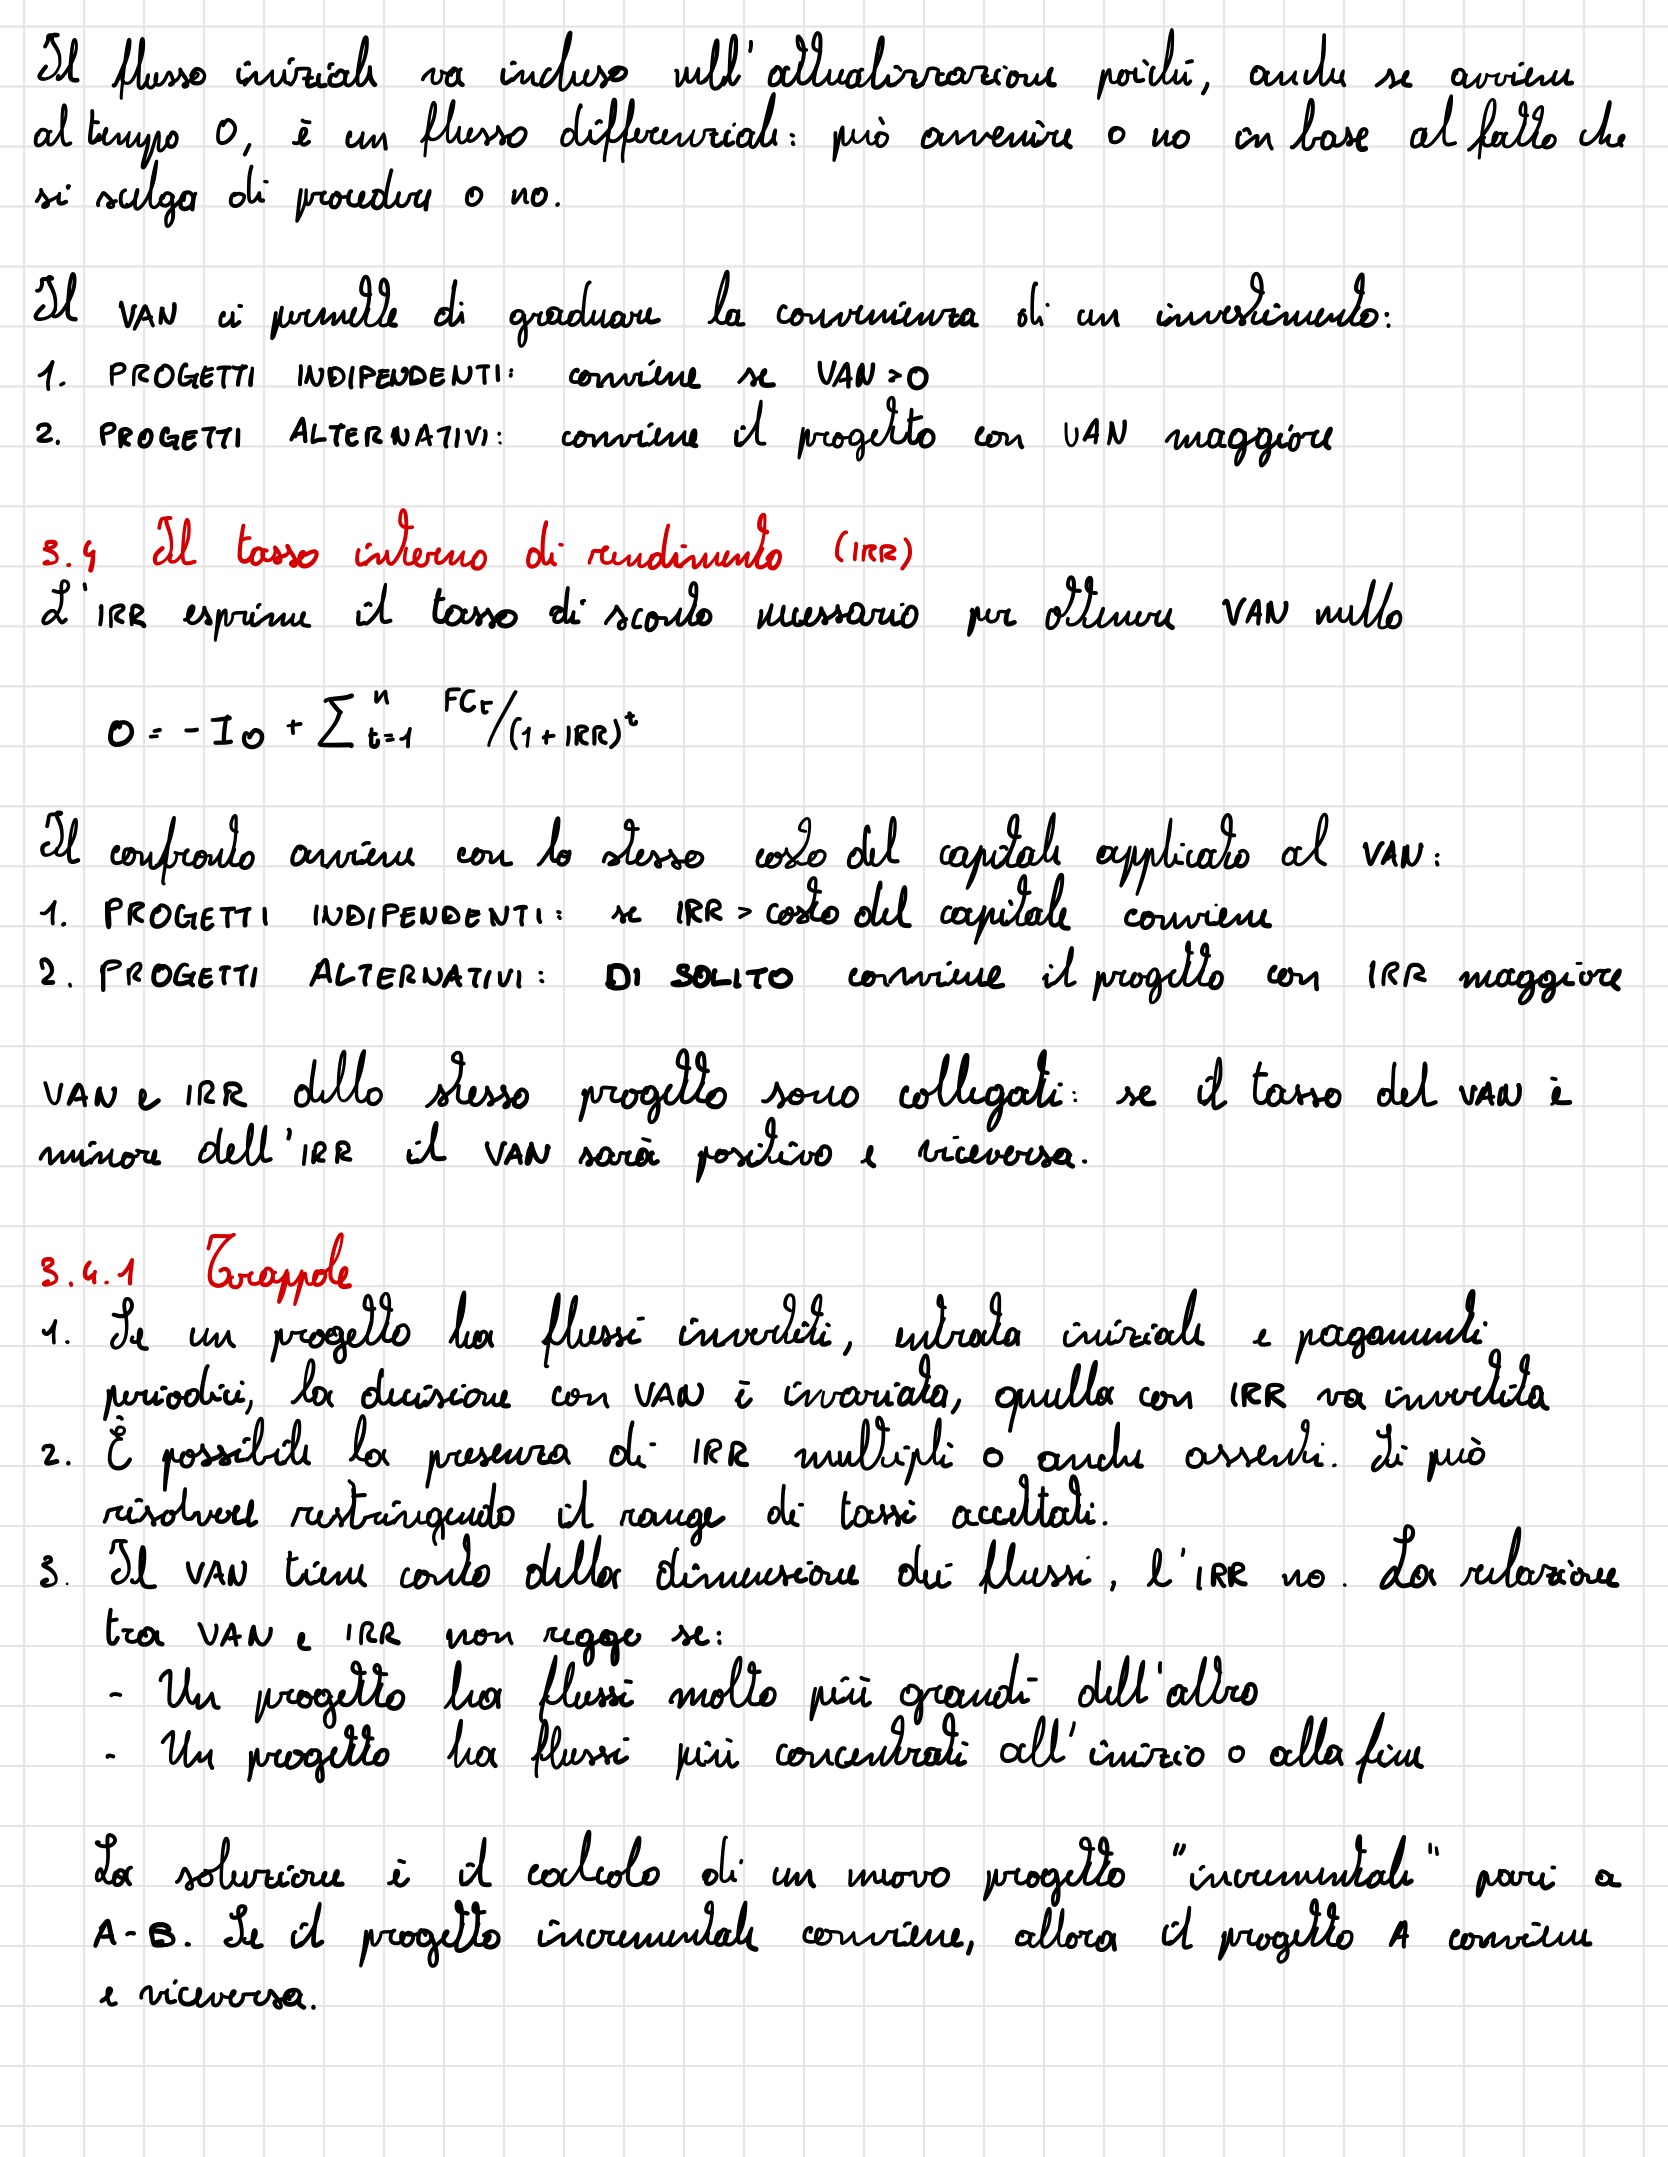 Il flusso iniziale va incluso nell'attualizzazione poiché, anche se avviene
al tempo 0, è un flusso differenziale: può avvenire o no in base al fatto che
si scelga di procedere o no.
Il VAN ci permette di graduare la convenienza di un investimento:
1. PROGETTI INDIPENDENTI: conviene se VAN>0
2. PROGETTI ALTERNATIVI: conviene il progetto con VAN maggiore
3.4 Il tasso interno di rendimento (IRR)
L'IRR esprime il tasso di sconto necessario per ottenere VAN nullo
0 = -I0 + ∑ⁿt=1 FCt/(1+IRR)^t
Il confronto avviene con lo stesso costo del capitale applicato al VAN:
1. PROGETTI INDIPENDENTI: se IRR > costo del capitale conviene
2. PROGETTI ALTERNATIVI: DI SOLITO conviene il progetto con IRR maggiore
VAN e IRR dello stesso progetto sono collegati: se il tasso del VAN è
minore dell'IRR il VAN sarà positivo e viceversa.
3.4.1 Trappole
1. Se un progetto ha flussi invertiti, entrata iniziale e pagamenti
periodici, la decisione con VAN è invariata, quella con IRR va invertita
2. È possibile la presenza di IRR multipli o anche assenti. Si può
risolvere restringendo il range di tassi accettati.
3. Il VAN tiene conto della dimensione dei flussi, l'IRR no. La relazione
tra VAN e IRR non regge se:
- Un progetto ha flussi molto più grandi dell'altro
- Un progetto ha flussi più concentrati all'inizio o alla fine
La soluzione è il calcolo di un nuovo progetto "incrementale" pari a
A-B. Se il progetto incrementale conviene, allora il progetto A conviene
e viceversa.